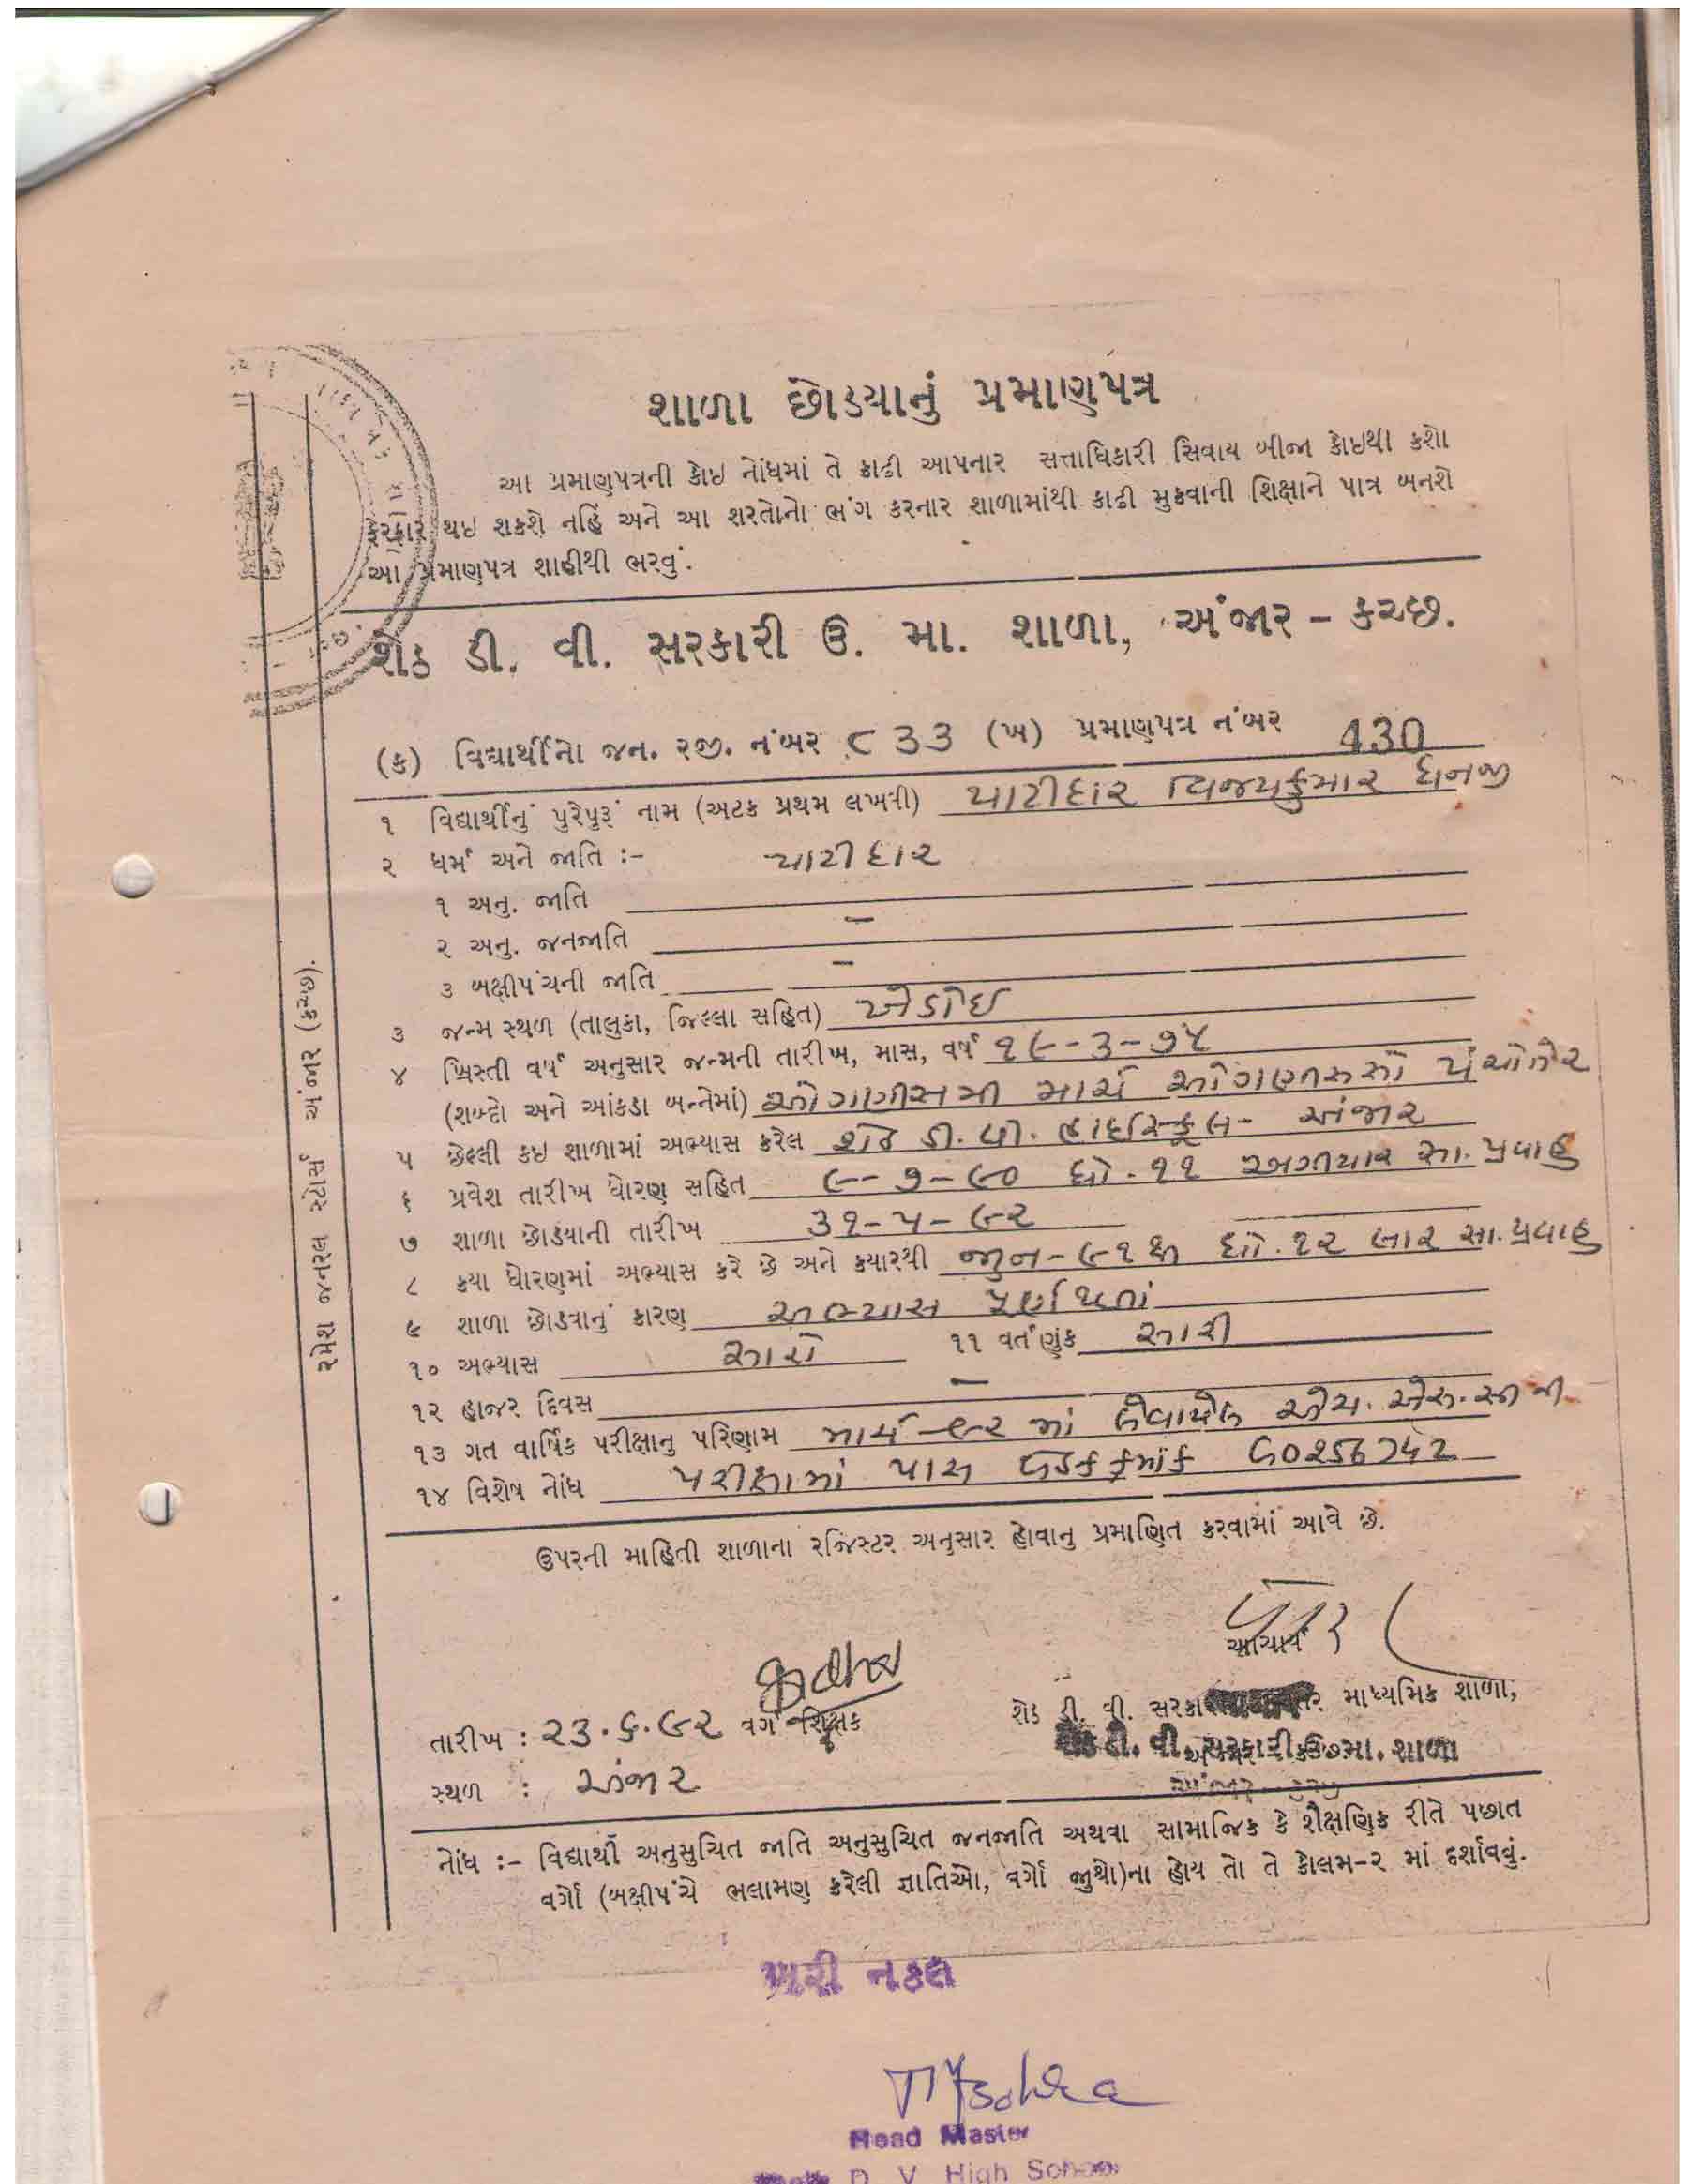 શાળા છોડયાનું પ્રમાણપત્ર
આ પ્રમાણપત્રની કોઇ નોંધમાં તે કાઢી આપનાર સત્તાધિકારી સિવાય બીજા કોઇથી કશો
ફેરફાર થઇ શકશે નહિં અને આ શરતોનો ભંગ કરનાર શાળામાંથી કાઢી મુકવાની શિક્ષાને પાત્ર બનશે
આ પ્રમાણપત્ર શાહીથી ભરવું.
શેઠ ડી. વી. સરકારી ઉ. મા. શાળા, અંજાર - કચ્છ.
(ક) વિદ્યાર્થીનો જન. રજી. નંબર ૮૩૩ (ખ) પ્રમાણપત્ર નંબર 430
૧ વિદ્યાર્થીનું પુરેપુરૂં નામ (અટક પ્રથમ લખવી) પાટીદાર વિજયકુમાર ધનજી
૨ ધર્મ અને જાતિ :- પાટીદાર
૧ અનુ. જાતિ
૨ અનુ. જનજાતિ -
૩ બક્ષીપંચની જાતિ -
૩ જન્મ સ્થળ (તાલુકા, જિલ્લા સહિત) ખેડોઇ
૪ ખ્રિસ્તી વર્ષ અનુસાર જન્મની તારીખ, માસ, વર્ષ ૧૯-૩-૭૫
(શબ્દો અને આંકડા બન્નેમાં) ઓગણીસમી માર્ચ ઓગણીસસો પંચોતેર
૫ છેલ્લી કઇ શાળામાં અભ્યાસ કરેલ શેઠ ડી. વી. હાઇસ્કૂલ- અંજાર
૬ પ્રવેશ તારીખ ધોરણ સહિત ૯-૭-૯૦ ધો.૧૧ અગીયાર સા. પ્રવાહ
૭ શાળા છોડયાની તારીખ ૩૧-૫-૯૨
૮ કયા ધોરણમાં અભ્યાસ કરે છે અને કયારથી જુન-૯૧થી ધો.૧૨ બાર સા. પ્રવાહ
૯ શાળા છોડવાનું કારણ અભ્યાસ પૂર્ણ થતાં
૧૦ અભ્યાસ સારો ૧૧ વર્તણુંક સારી
૧૨ હાજર દિવસ -
૧૩ ગત વાર્ષિક પરીક્ષાનુ પરિણામ માર્ચ-૯૨ માં લેવાયેલ એચ. એસ. સી ની
૧૪ વિશેષ નોંધ પરીક્ષામાં પાસ બેઠક ક્રમાંક
ઉપરની માહિતી શાળાના રજિસ્ટર અનુસાર હોવાનુ પ્રમાણિત કરવામાં આવે છે.
આચાર્ય
તારીખ : ૨૩.૬.૯૨ વર્ગ શિક્ષક
શેઠ ડી. વી. માધ્યમિક શાળા,
ડી. વી. સરકારી ઉ. મા. શાળા
સ્થળ : અંજાર
નોંધ :- વિદ્યાર્થી અનુસુચિત જાતિ અનુસુચિત જનજાતિ અથવા સામાજિક કે શૈક્ષણિક રીતે પછાત
વર્ગો (બક્ષીપંચે ભલામણ કરેલી જ્ઞાતિઓ, વર્ગો જુથો)ના હોય તો તે કોલમ-૨ માં દર્શાવવું.
રમેશ જનરલ સ્ટોર્સ અંજાર (કચ્છ).
ખરી નકલ
Head Master
D. V. High School